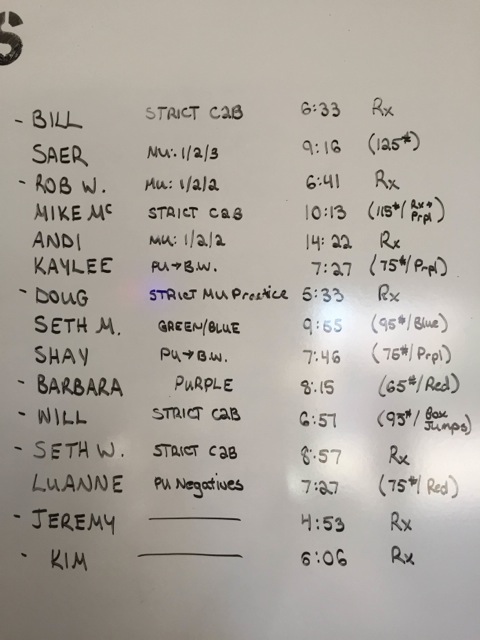 S
- BILL STRICT C2B 6:33 Rx
SAER MU: 1/2/3 9:16 (125#)
- ROB W. MU: 1/2/2 6:41 Rx
MIKE Mc STRICT C2B 10:13 (115#/Rx+ Prpl)
ANDI MU: 1/2/2 14:22 Rx
KAYLEE PU→B.W. 7:27 (75#/Prpl)
- DOUG STRICT MU Practice 5:33 Rx
SETH M. GREEN/BLUE 9:55 (95#/Blue)
SHAY PU→B.W. 7:46 (75#/Prpl)
- BARBARA PURPLE 8:15 (65#/Red)
- WILL STRICT C2B 6:57 (93#/Box Jumps)
- SETH W. STRICT C2B 8:57 Rx
LUANNE PU Negatives 7:27 (75#/Red)
- JEREMY 4:53 Rx
- KIM 6:06 Rx